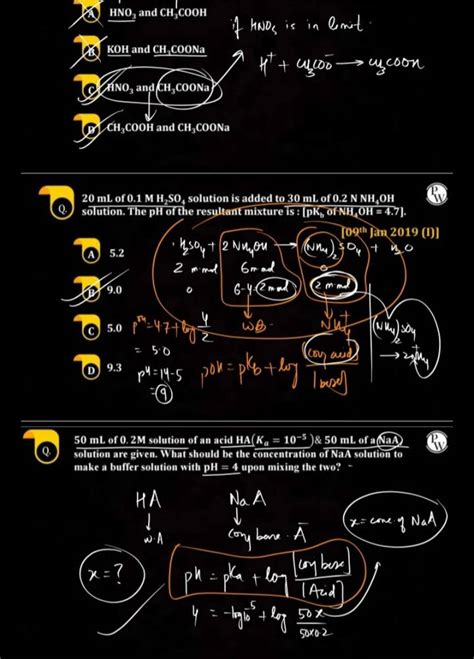 A HNO₂ and CH₃COOH
if HNO₃ is in limit.
B KOH and CH₃COONa
H⁺ + CH₃COO⁻ → CH₃COOH
C HNO₃ and CH₃COONa
D CH₃COOH and CH₃COONa
PW
Q. 20 mL of 0.1 M H₂SO₄ solution is added to 30 mL of 0.2 N NH₄OH
solution. The pH of the resultant mixture is : [pKb of NH₄OH = 4.7].
[09th Jan 2019 (I)]
H₂SO₄ + 2 NH₄OH → (NH₄)₂SO₄ + H₂O
A 5.2
2 mmol 6 mmol 0
B 9.0
0 6-4 = 2 mmol 2 mmol
C 5.0
pOH = 4.7 + log 4/2
WB NH₄⁺
(NH₄)₂SO₄
→ 2NH₄
= 5.0
D 9.3
pH = 14-5
= 9
pOH = pKb + log [conj acid]/[base]
PW
Q. 50 mL of 0.2M solution of an acid HA(Kₐ = 10⁻⁵)& 50 mL of a NaA
solution are given. What should be the concentration of NaA solution to
make a buffer solution with pH = 4 upon mixing the two?
HA NaA
↓ ↓
W.A Conj base A⁻
x = conc. of NaA
x = ?
pH = pKa + log [conj base]/[Acid]
4 = -log10⁻⁵ + log 50x/50x0.2